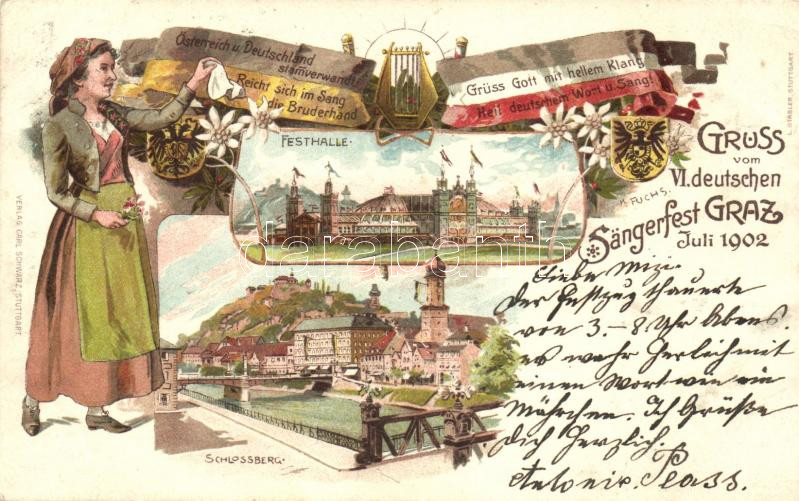 Österreich u. Deutschland
stamverwandt!
Reicht sich im Sang
die Bruderhand
Grüss Gott mit hellem Klang
Heil deutschem Wort u. Sang!
FESTHALLE.
K. FUCHS.
GRUSS
vom
VI. deutschen
Sängerfest GRAZ
Juli 1902
L. STABLER, STUTTGART
VERLAG CARL SCHWARZ, STUTTGART
SCHLOSSBERG.
darabanth
Liebe Mizi.
Der Festzug thauerte
von 3-8 Uhr Abens.
es wahr herlich mit
einen Wort wie ein
Mährchen. Ich Grüße
Dich Herzlich.
Antonie Plass.